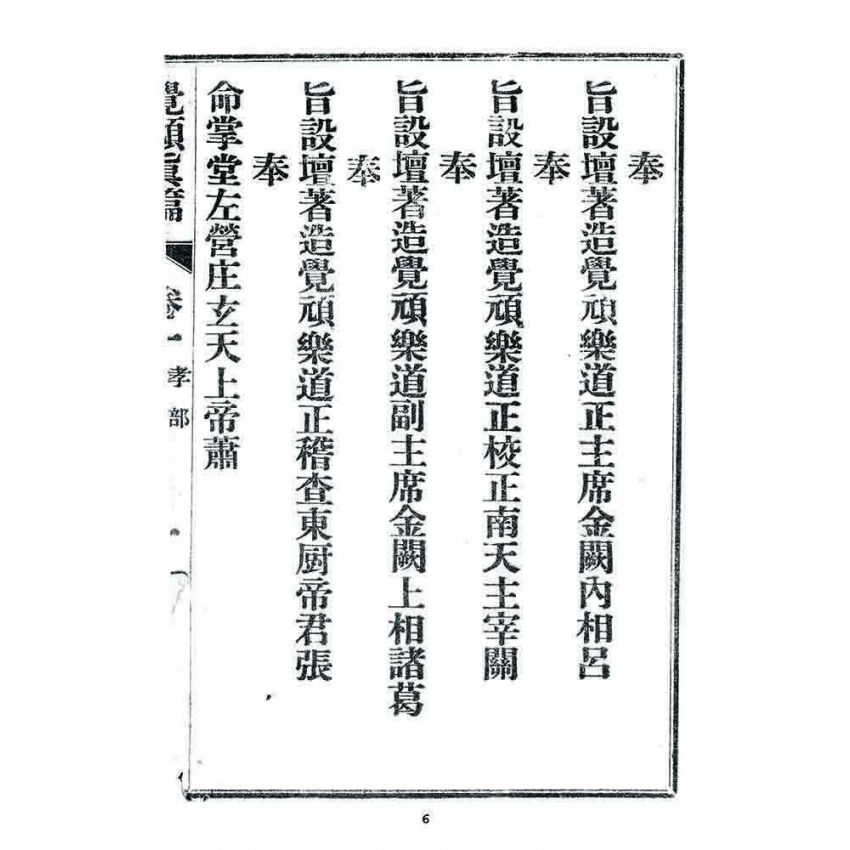 奉
旨設壇著造覺頑樂道正主席金闕內相呂
奉
旨設壇著造覺頑樂道正校正南天主宰關
奉
旨設壇著造覺頑樂道副主席金闕上相諸葛
奉
旨設壇著造覺頑樂道正稽查東厨帝君張
奉
命掌堂左營庄玄天上帝蕭
覺頑眞篇
卷一 孝部
一
6